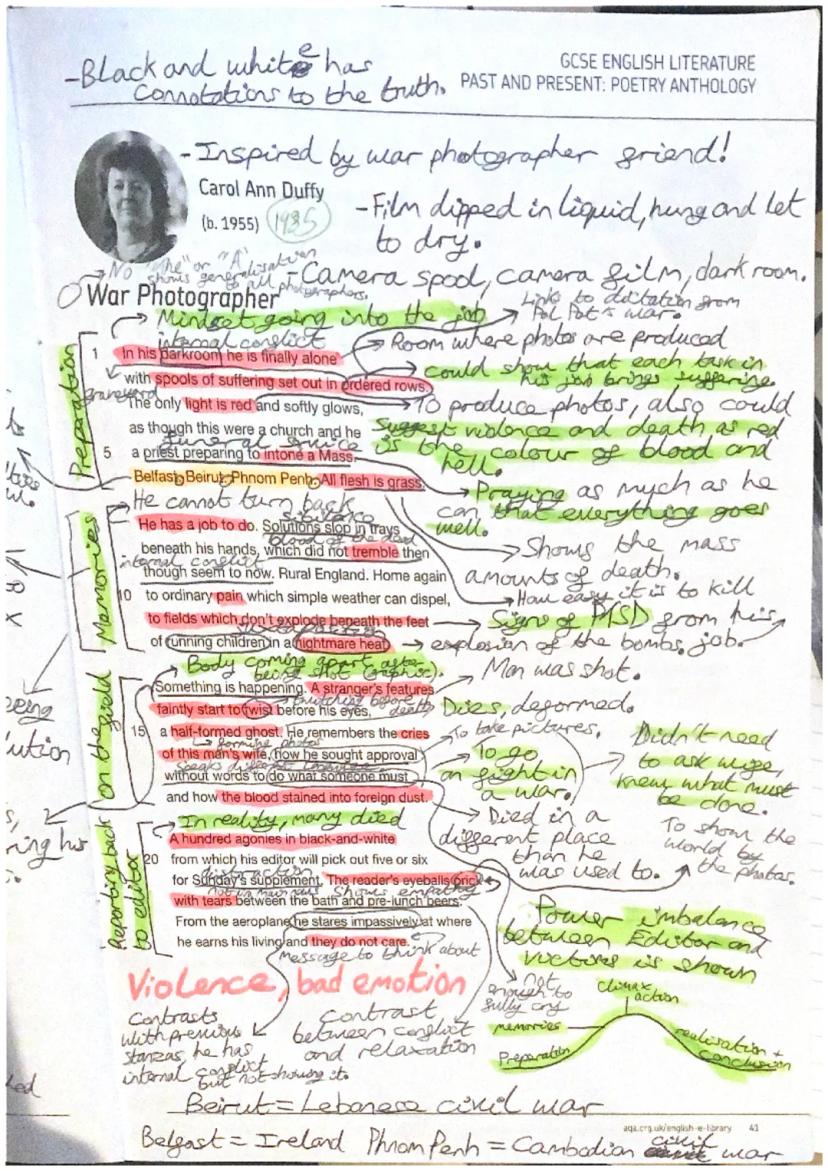 -Black and white has
connotations to the truth.
GCSE ENGLISH LITERATURE
PAST AND PRESENT: POETRY ANTHOLOGY
-Inspired by war photographer friend!
Carol Ann Duffy
(b. 1955) 1985
-Film dipped in liquid, hung and let
to dry.
No "The" or "A"
shows generalisation
to all photographers.
-Camera spool, camera film, dark room.
War Photographer
Links to dictation from
Pol Pot's war.
Mindset going into the job
internal conflict
Room where photos are produced
Preparation
1 In his parkroom he is finally alone
could show that each task in
his job brings suffering.
with spools of suffering set out in ordered rows.
graveyard
The only light is red and softly glows,
To produce photos, also could
suggest violence and death as red
is the colour of blood and
hell.
as though this were a church and he
funeral service
5 a priest preparing to intone a Mass.
Belfast. Beirut. Phnom Penh. All flesh is grass.
Praying as much as he
can that everything goes
well.
He cannot turn back
Memories
He has a job to do. Solutions slop in trays
blood of the dead
beneath his hands, which did not tremble then
Shows the mass
amounts of death.
internal conflict
though seem to now. Rural England. Home again
10 to ordinary pain which simple weather can dispel,
How easy it is to kill
to fields which don't explode beneath the feet
Signs of PTSD from his
job.
of running children in a nightmare heat.
explosion of the bombs.
Body coming apart after
being shot (graphic).
Man was shot.
on the field
Something is happening. A stranger's features
before
death
faintly start to twist before his eyes,
Dies, deformed.
15 a half-formed ghost. He remembers the cries
To take pictures.
forming photos
of this man's wife, how he sought approval
To go
on fight in
a war.
Didn't need
to ask wife,
knew what must
be done.
without words to do what someone must
and how the blood stained into foreign dust.
Died in a
different place
than he
was used to.
To show the
world by
the photos.
In reality, many died
Reporting back
to editor
A hundred agonies in black-and-white
20 from which his editor will pick out five or six
distraction
for Sunday's supplement. The reader's eyeballs prick
not in main news
shows empathy
with tears between the bath and pre-lunch beers.
From the aeroplane he stares impassively at where
he earns his living and they do not care.
message to think about
Power imbalance
between Editor and
victims is shown
not
enough to
fully cry
Violence, bad emotion
Contrasts
with previous
stanzas, he has
internal conflict
but not showing it.
Contrast
between conflict
and relaxation
climax
action
memories
Preparation
realisation +
conclusion
Beirut = Lebanese civil war
aqa.org.uk/english-e-library 41
Belfast = Ireland Phnom Penh = Cambodian civil war